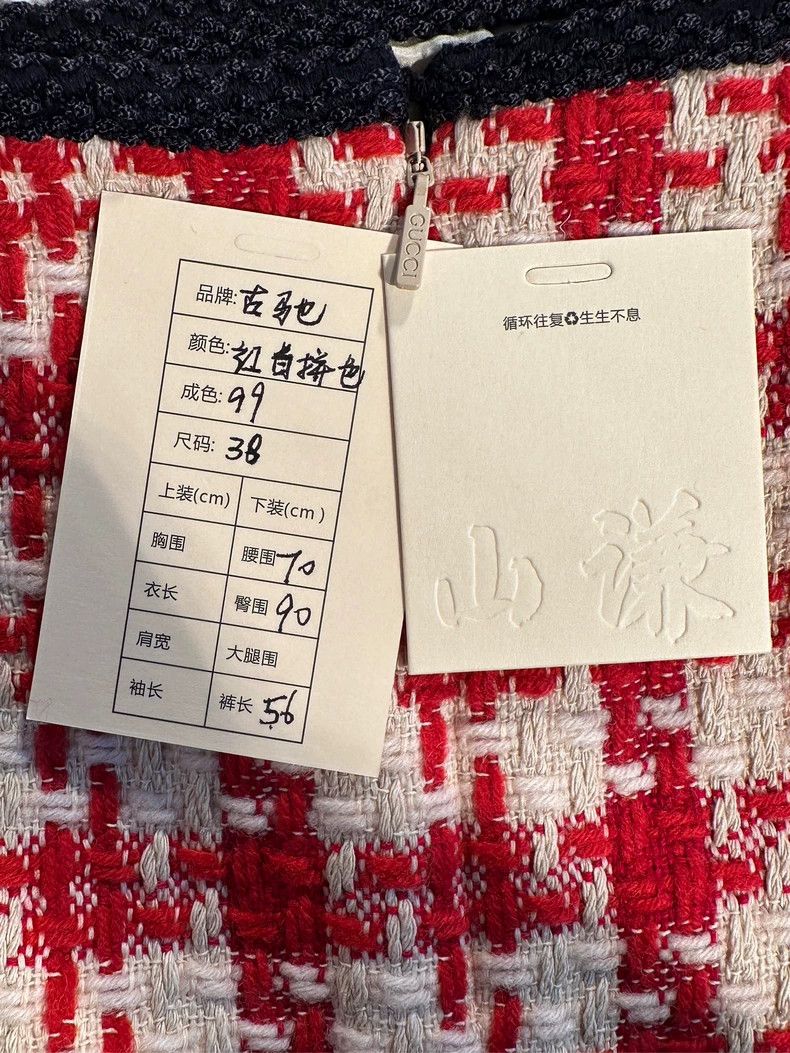 GUCCI
品牌:古驰
颜色:红白拼色
成色:99
尺码:38
上装(cm) 下装(cm)
胸围 腰围70
衣长 臀围90
肩宽 大腿围
袖长 裤长56
循环往复♻生生不息
山谦